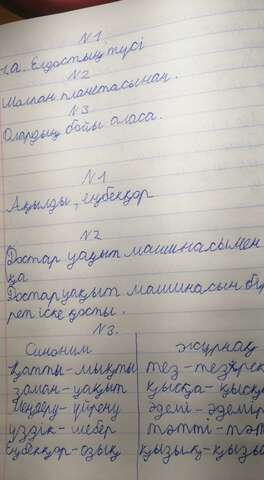 N1
1,а. Елдостың түсі
N2
Малпан планетасынан.
N3
Олардың бойы аласа.
N1
Ақылды, еңбекқор
N2
Достар уақыт машинасымен
қа
Достар уақыт машинасын бір
рет іске қосты.
N3.
Синоним журнақ
қатты - мықты тез - тезірек
заман - уақыт қысқа - қысқ
меңгеру - үйрену әдемі - әдемір
үздік - шебер тәтті - тәт
еңбекқор - озық қызық - қызы